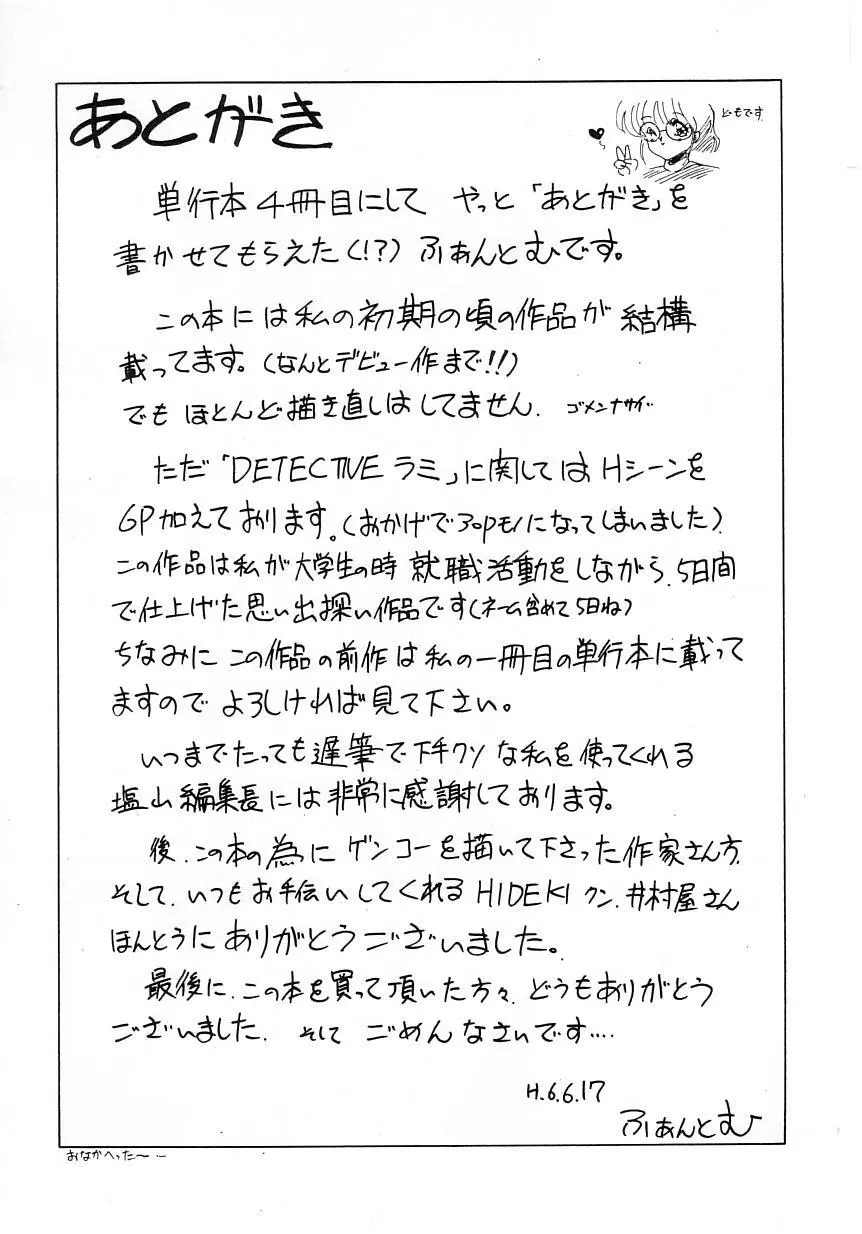 あとがき
どもです
単行本4冊目にして やっと「あとがき」を
書かせてもらえた(!?) ふぁんとむです。
この本には私の初期の頃の作品が 結構
載ってます。(なんとデビュー作まで!!)
でも ほとんど描き直しはしてません. ゴメンナサイ
ただ「DETECTIVE ラミ」に関しては Hシーンを
6P加えております。(おかげで30pモノになってしまいました).
この作品は私が大学生の時 就職活動をしながら、5日間
で仕上げた思い出深い作品です(ネーム含めて5日ね)
ちなみに この作品の前作は私の一冊目の単行本に載って
ますので よろしければ見て下さい。
いつまでたっても遅筆で下手クソな私を使ってくれる
塩山編集長には非常に感謝しております。
後、この本の為に ゲンコーを描いて下さった作家さん方、
そして、いつもお手伝いしてくれる HIDEKI クン、井村屋さん
ほんとうに ありがとうございました。
最後に、この本を買って頂いた方々、どうもありがとう
ございました. そして ごめんなさいです....
H.6.6.17
ふぁんとむ
おなかへった〜